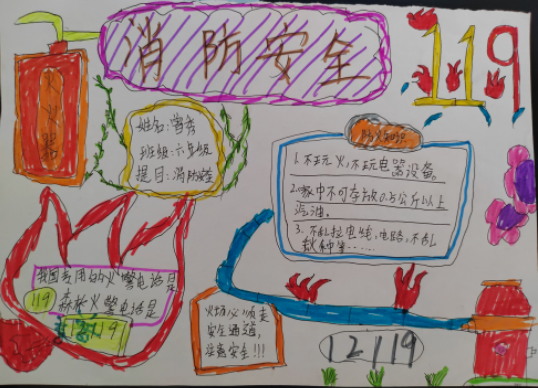 消防安全
119
灭火器
姓名:曾秀
班级:六年级
提目:消防安全
防火知识
1.不玩火,不玩电器设备。
2.家中不可存放0.5公斤以上
汽油。
3.不乱拉电线,电路,不乱
我国专用的火警电话是
119
森林火警电话是
12119
火场必须走
安全通道,
注意安全!!!
12119